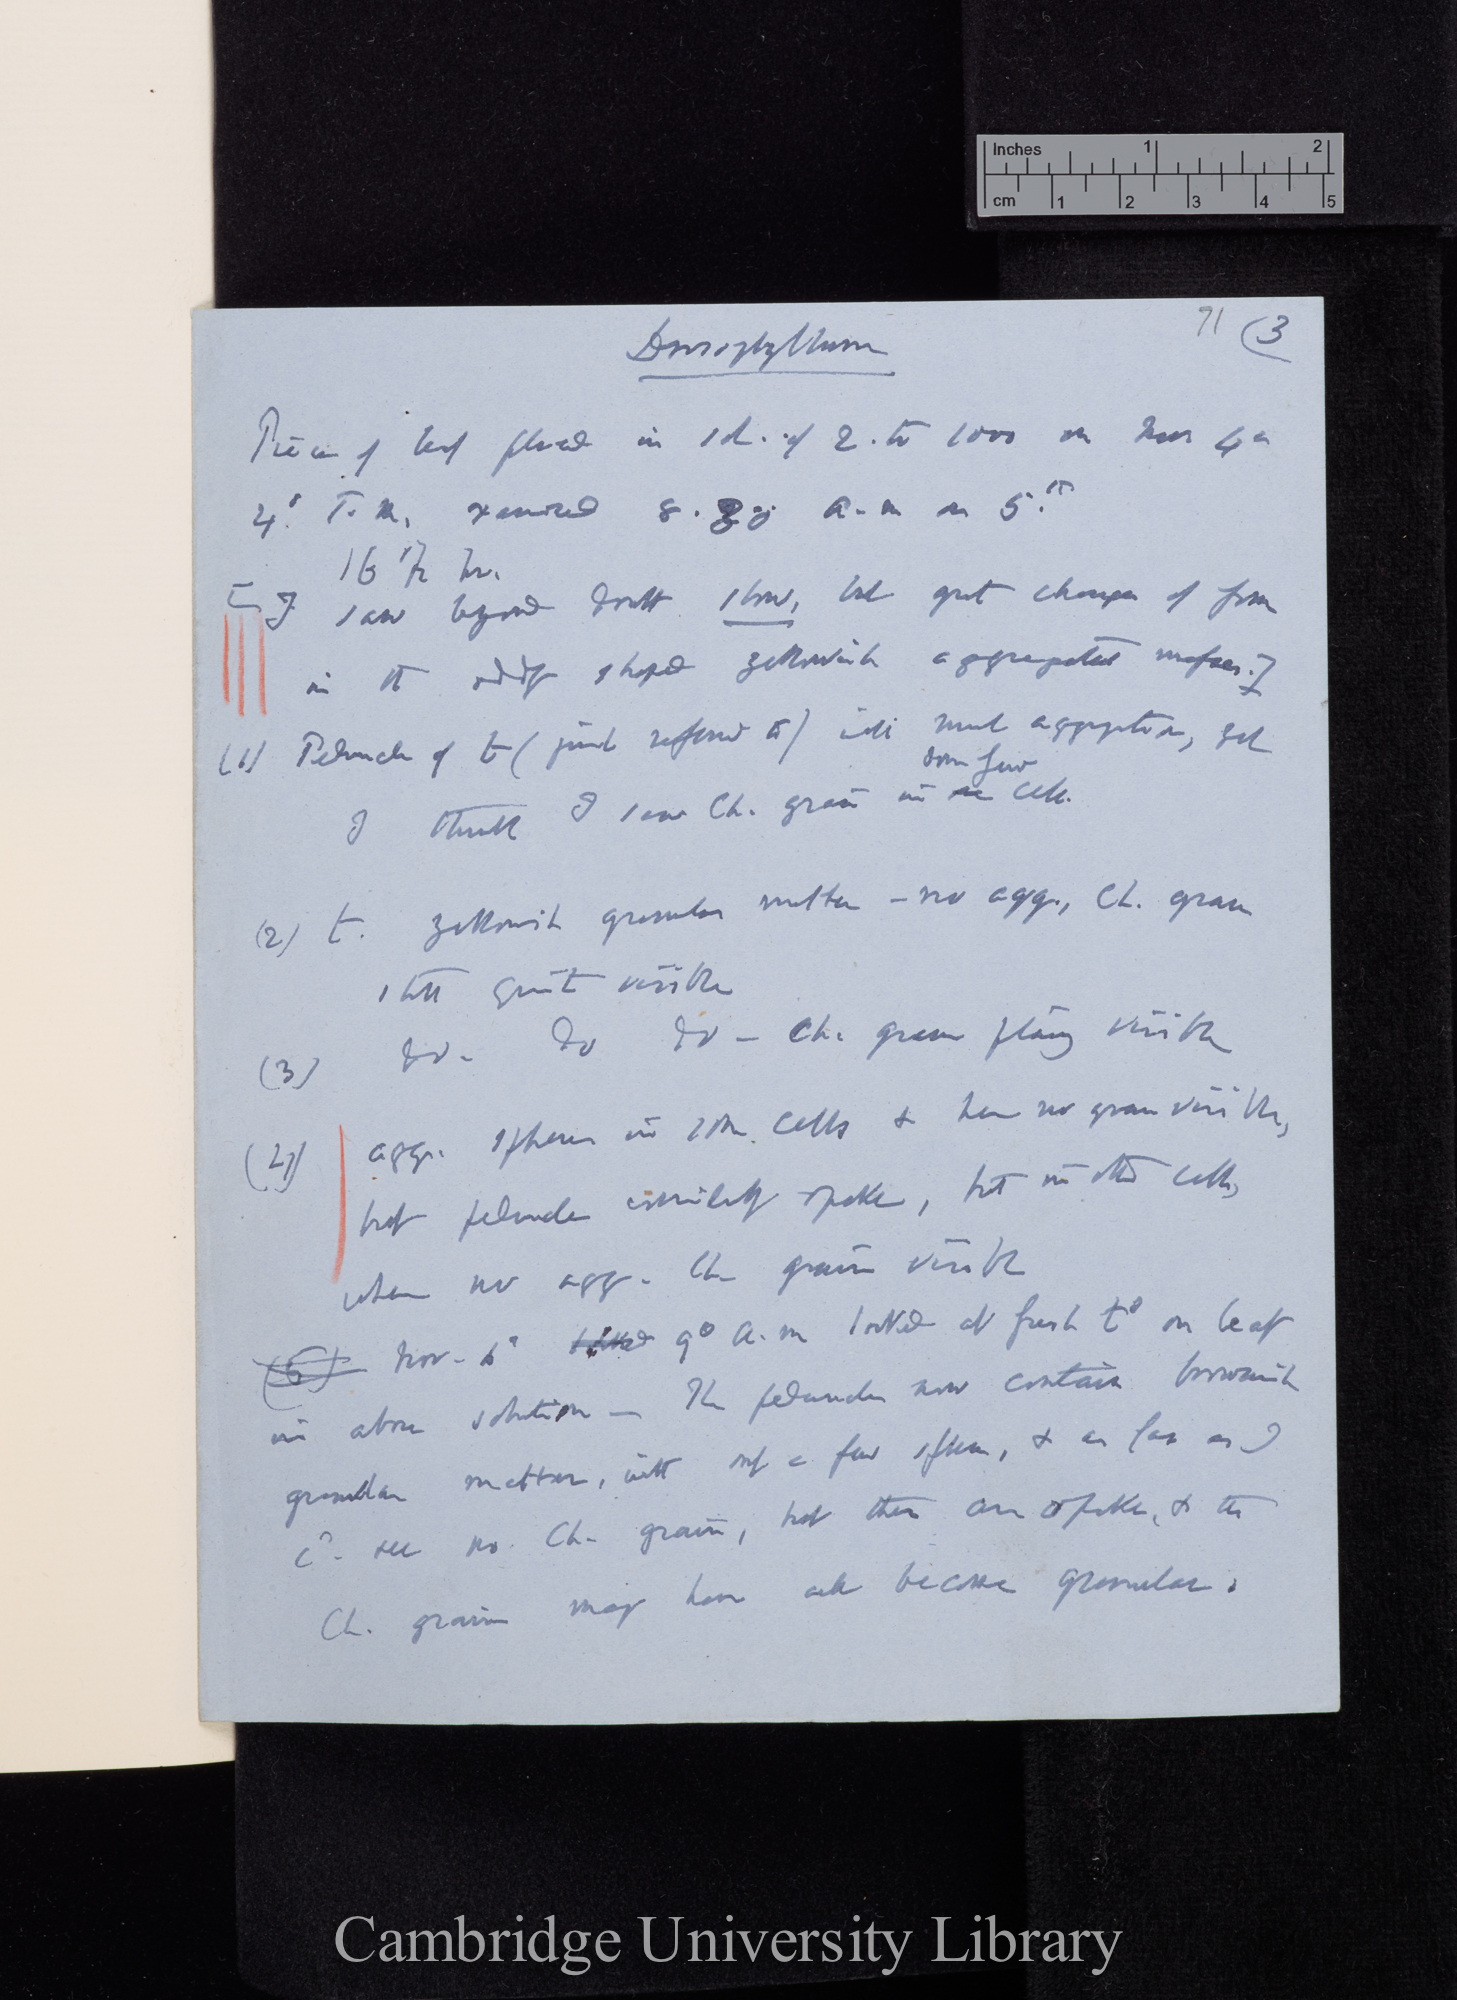 Inches 1 2
cm 1 2 3 4 5
71 (3
Drosophyllum
Piece of leaf placed in sol. of 2. to 1000 on Nov 4th
4°. P.M. examined 8. 30 a.m on 5.th
16 1/2 hr.
[I saw beyond doubt slow, but great changes of form
in the oddly shaped yellowish aggregated masses.]
(1) Peduncle of t (just referred to) with much aggregation, yet
some few
I think I saw Ch. grains in cells.
(2) t. yellowish granular matter – no agg., Ch. grains
still quite visible
(3) do. do do – Ch. grains plainly visible
(4) agg. spheres in some cells & here no grain visible,
but peduncle opake, but in other cells,
when no agg. Ch grains visible
(5) Nov. 6th 9° a.m looked at fresh ts on leaf
in above solution — The peduncles now contain brownish
granular matter, with only a few spheres, & as far as I
cd. see no. Ch. grains, but they are opake, & the
Ch. grains may have all become granular.
Cambridge University Library